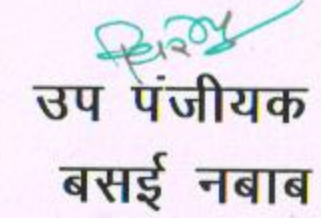 उप पंजीयक
बसई नबाब